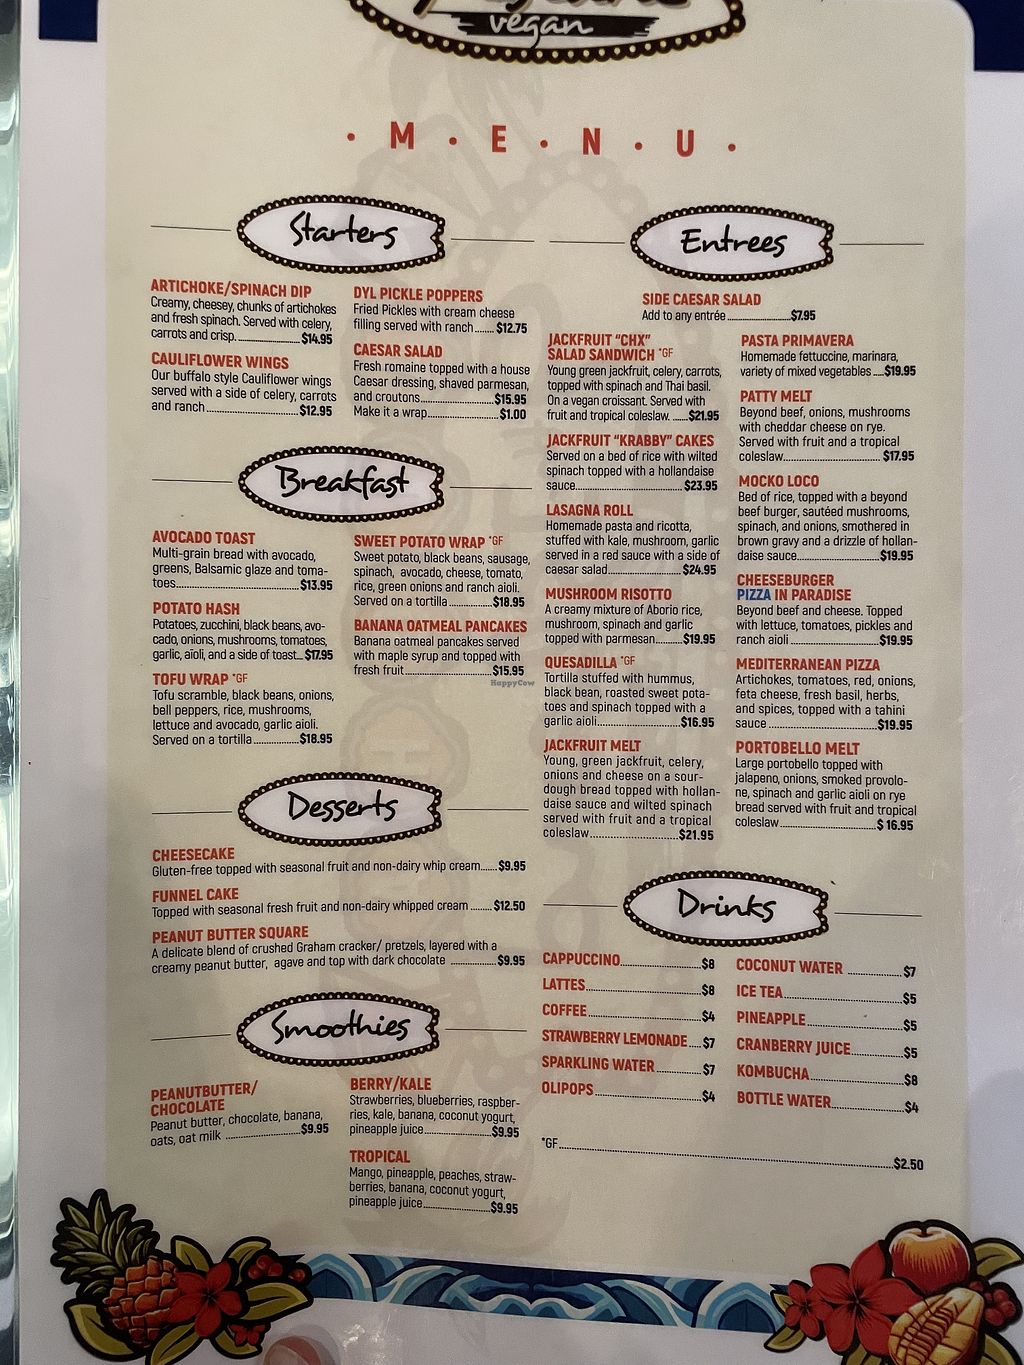 vegan
· M · E · N · U ·
Starters
ARTICHOKE/SPINACH DIP
Creamy, cheesey, chunks of artichokes
and fresh spinach. Served with celery,
carrots and crisp. $14.95
CAULIFLOWER WINGS
Our buffalo style Cauliflower wings
served with a side of celery, carrots
and ranch $12.95
DYL PICKLE POPPERS
Fried Pickles with cream cheese
filling served with ranch $12.75
CAESAR SALAD
Fresh romaine topped with a house
Caesar dressing, shaved parmesan,
and croutons $15.95
Make it a wrap $1.00
Breakfast
AVOCADO TOAST
Multi-grain bread with avocado,
greens, Balsamic glaze and toma-
toes $13.95
POTATO HASH
Potatoes, zucchini, black beans, avo-
cado, onions, mushrooms, tomatoes,
garlic, aioli, and a side of toast $17.95
TOFU WRAP *GF
Tofu scramble, black beans, onions,
bell peppers, rice, mushrooms,
lettuce and avocado, garlic aioli.
Served on a tortilla $18.95
SWEET POTATO WRAP *GF
Sweet potato, black beans, sausage,
spinach, avocado, cheese, tomato,
rice, green onions and ranch aioli.
Served on a tortilla $18.95
BANANA OATMEAL PANCAKES
Banana oatmeal pancakes served
with maple syrup and topped with
fresh fruit $15.95
HappyCow
Desserts
CHEESECAKE
Gluten-free topped with seasonal fruit and non-dairy whip cream $9.95
FUNNEL CAKE
Topped with seasonal fresh fruit and non-dairy whipped cream $12.50
PEANUT BUTTER SQUARE
A delicate blend of crushed Graham cracker/ pretzels, layered with a
creamy peanut butter, agave and top with dark chocolate $9.95
Smoothies
PEANUTBUTTER/
CHOCOLATE
Peanut butter, chocolate, banana,
oats, oat milk $9.95
BERRY/KALE
Strawberries, blueberries, raspber-
ries, kale, banana, coconut yogurt,
pineapple juice $9.95
TROPICAL
Mango, pineapple, peaches, straw-
berries, banana, coconut yogurt,
pineapple juice $9.95
Entrees
SIDE CAESAR SALAD
Add to any entrée $7.95
JACKFRUIT "CHX"
SALAD SANDWICH *GF
Young green jackfruit, celery, carrots,
topped with spinach and Thai basil.
On a vegan croissant. Served with
fruit and tropical coleslaw. $21.95
JACKFRUIT "KRABBY" CAKES
Served on a bed of rice with wilted
spinach topped with a hollandaise
sauce $23.95
LASAGNA ROLL
Homemade pasta and ricotta,
stuffed with kale, mushroom, garlic
served in a red sauce with a side of
caesar salad $24.95
MUSHROOM RISOTTO
A creamy mixture of Aborio rice,
mushroom, spinach and garlic
topped with parmesan $19.95
QUESADILLA *GF
Tortilla stuffed with hummus,
black bean, roasted sweet pota-
toes and spinach topped with a
garlic aioli $16.95
JACKFRUIT MELT
Young, green jackfruit, celery,
onions and cheese on a sour-
dough bread topped with hollan-
daise sauce and wilted spinach
served with fruit and a tropical
coleslaw $21.95
PASTA PRIMAVERA
Homemade fettuccine, marinara,
variety of mixed vegetables $19.95
PATTY MELT
Beyond beef, onions, mushrooms
with cheddar cheese on rye.
Served with fruit and a tropical
coleslaw $17.95
MOCKO LOCO
Bed of rice, topped with a beyond
beef burger, sautéed mushrooms,
spinach, and onions, smothered in
brown gravy and a drizzle of hollan-
daise sauce $19.95
CHEESEBURGER
PIZZA IN PARADISE
Beyond beef and cheese. Topped
with lettuce, tomatoes, pickles and
ranch aioli $19.95
MEDITERRANEAN PIZZA
Artichokes, tomatoes, red, onions,
feta cheese, fresh basil, herbs,
and spices, topped with a tahini
sauce $19.95
PORTOBELLO MELT
Large portobello topped with
jalapeno, onions, smoked provolo-
ne, spinach and garlic aioli on rye
bread served with fruit and tropical
coleslaw $ 16.95
Drinks
CAPPUCCINO $8
LATTES $8
COFFEE $4
STRAWBERRY LEMONADE $7
SPARKLING WATER $7
OLIPOPS $4
COCONUT WATER $7
ICE TEA $5
PINEAPPLE $5
CRANBERRY JUICE $5
KOMBUCHA $8
BOTTLE WATER $4
*GF $2.50